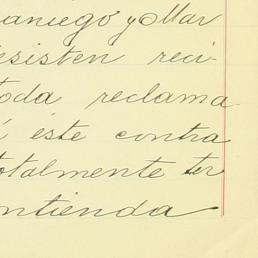 aniego y Mar
esisten reci-
toda reclama
í éste contra
totalmente ter
ntienda